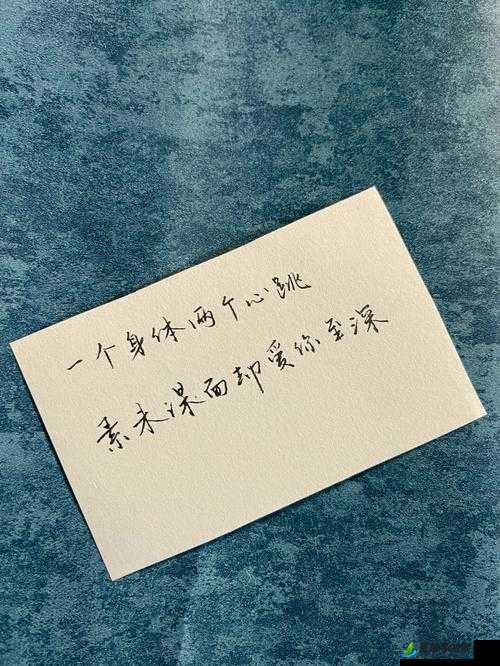 一个身体两个心跳
素未谋面却爱你至深